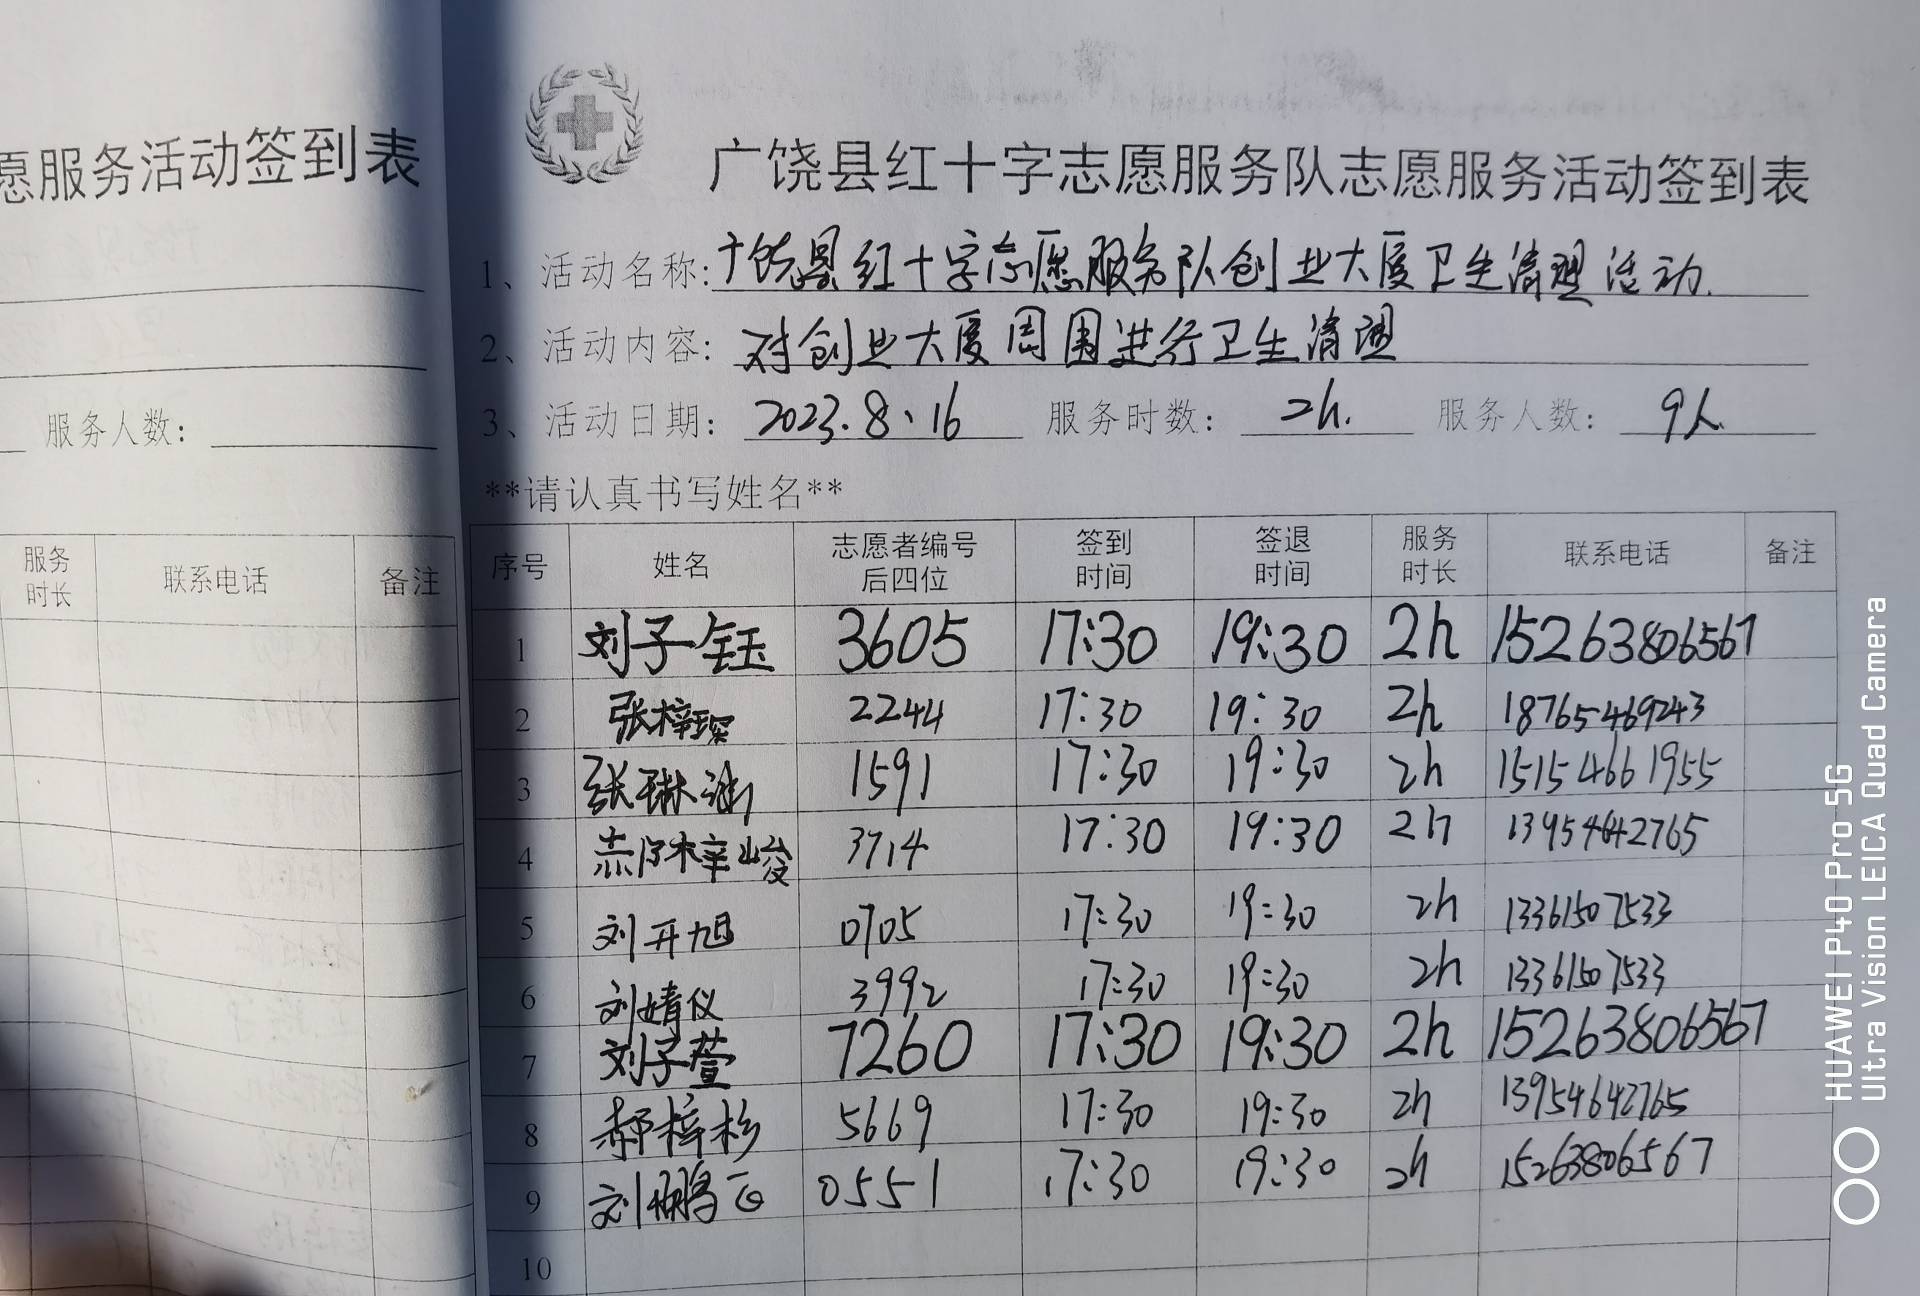 愿服务活动签到表
服务人数:
服务时长 联系电话 备注
广饶县红十字志愿服务队志愿服务活动签到表
1、活动名称:广饶县红十字志愿服务队创业大厦卫生清理活动.
2、活动内容: 对创业大厦周围进行卫生清理
3、活动日期: 2023.8、16 服务时数: 2h. 服务人数: 9人
**请认真书写姓名**
序号 姓名 志愿者编号后四位 签到时间 签退时间 服务时长 联系电话 备注
1 刘子钰 3605 17:30 19:30 2h 15263806567
2 张梓琛 2244 17:30 19:30 2h 18765469243
3 张琳 1591 17:30 19:30 2h 15154661955
4 郝梓峻 3714 17:30 19:30 2h 13954642765
5 刘开旭 0705 17:30 19:30 2h 13361507533
6 刘婧仪 3992 17:30 19:30 2h 13361507533
7 刘子萱 7260 17:30 19:30 2h 15263806567
8 郝梓杉 5669 17:30 19:30 2h 13954642765
9 刘鹏飞 0551 17:30 19:30 2h 15263806567
10
HUAWEI P40 Pro 5G
Ultra Vision LEICA Quad Camera